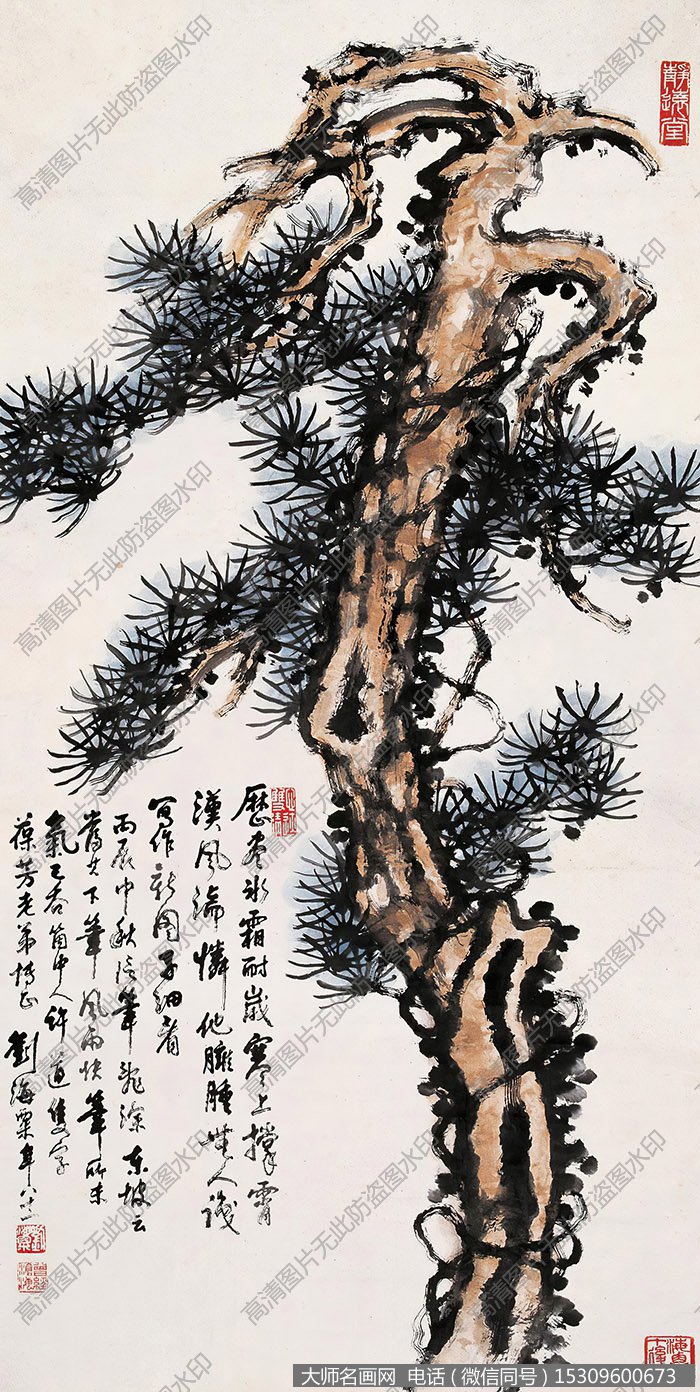 歷尽冰霜耐歲寒上撐霄
漢風湍憐他臃腫
人
寫作新圖子細看
丙辰中秋
筆
東坡云
當其下筆風雨快筆所未
氣已吞箇中人許道隻字
葆芳老弟博正
劉海粟年八十一
靜遠堂
曾經滄海
高清图片无此防盗图水印
大师名画网 电话（微信同号）15309600673